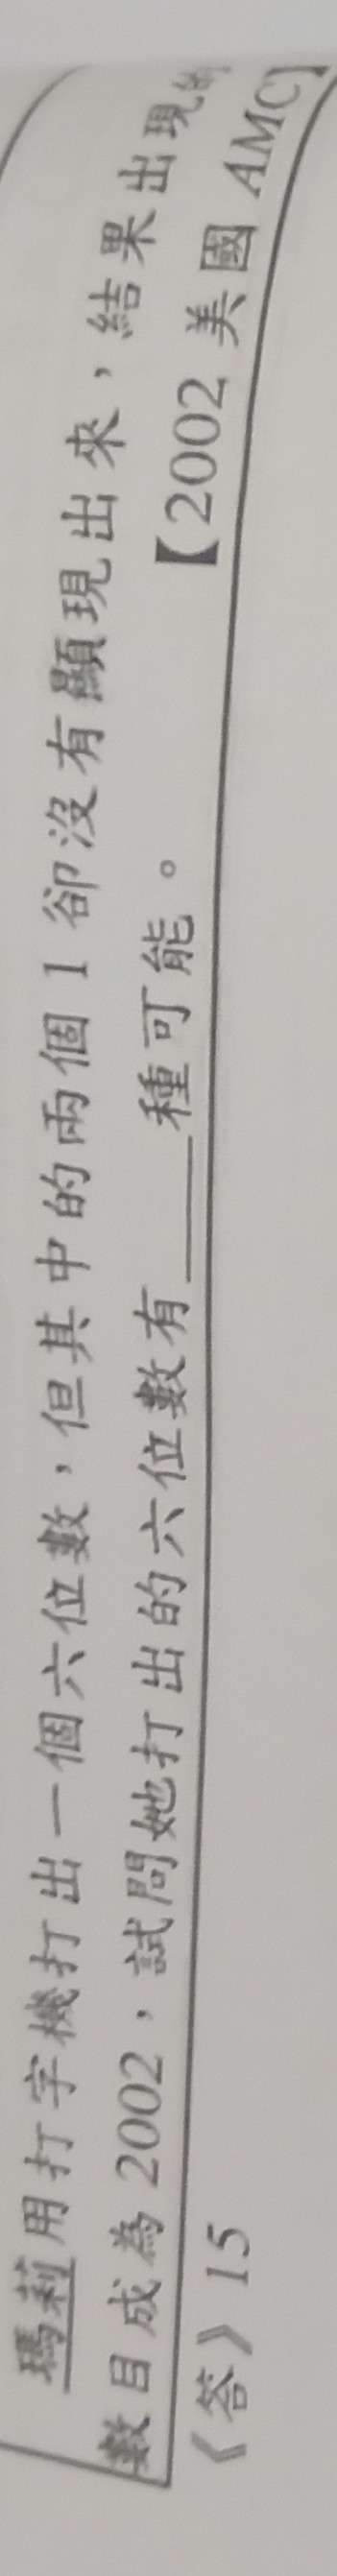 瑪莉用打字機打出一個六位數，但其中的兩個1卻沒有顯現出來，結果出現的
數目成為2002，試問她打出的六位數有____種可能。【2002美國AMC】
《答》15